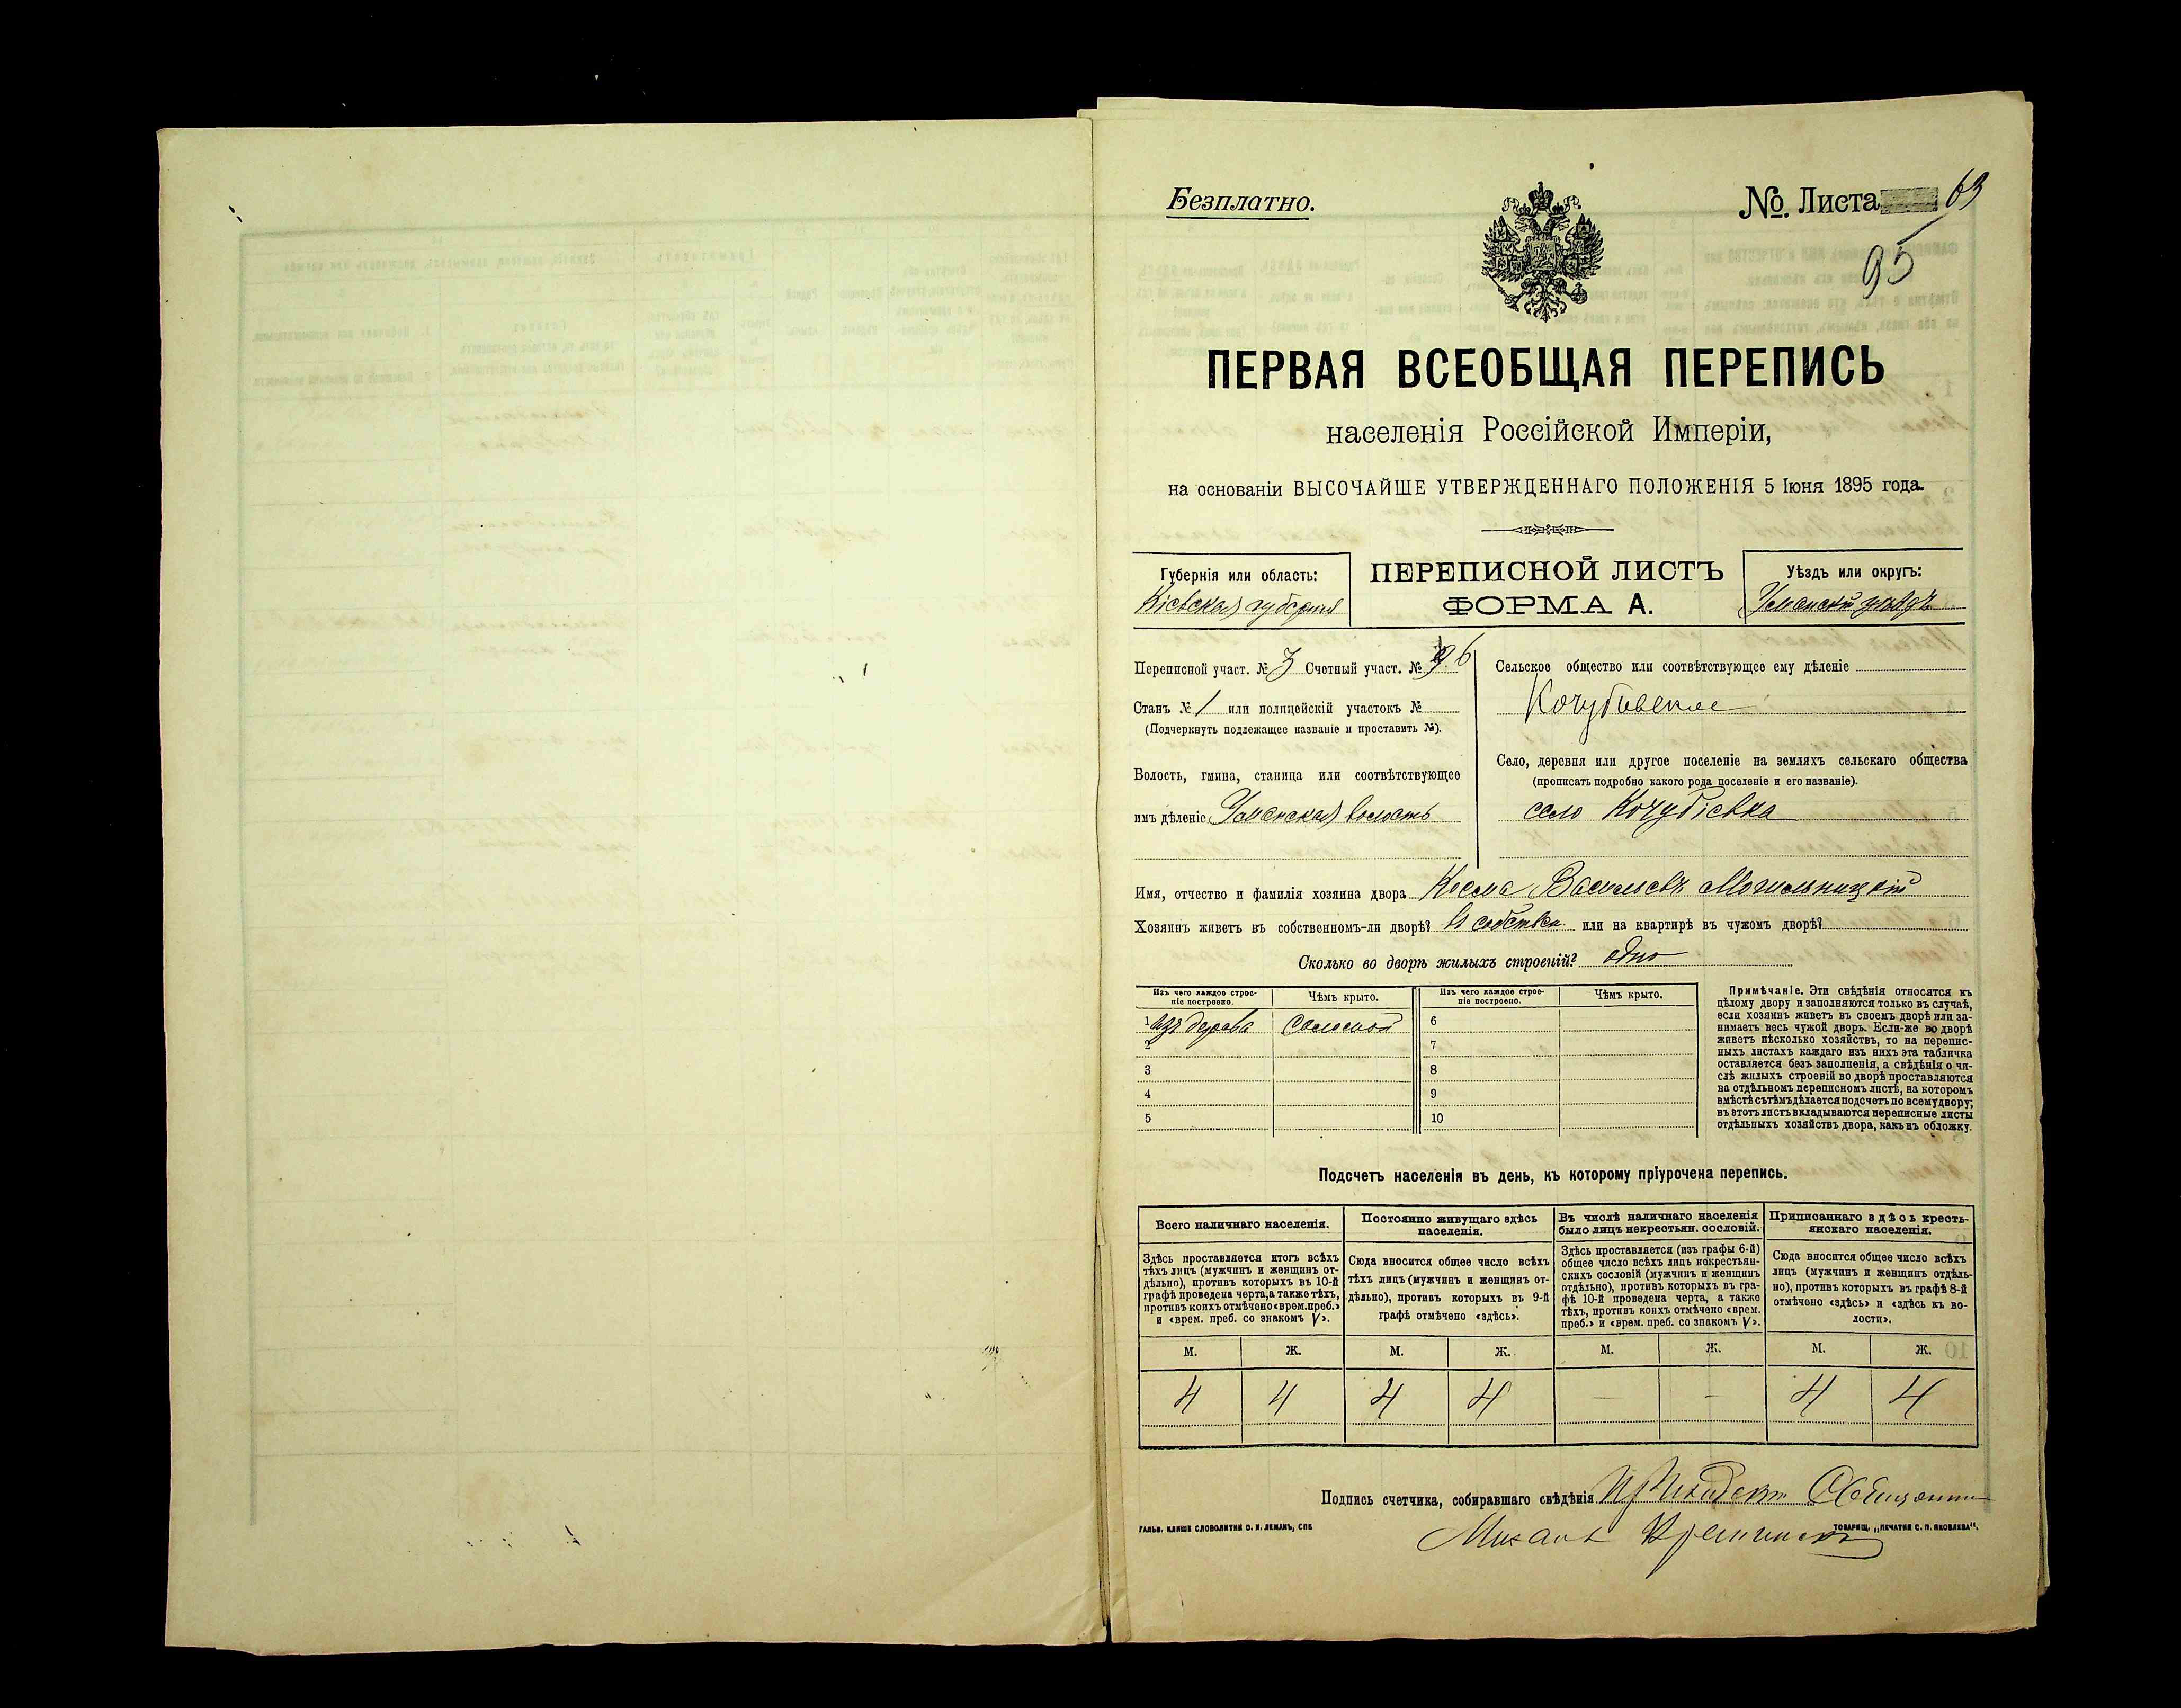 Безплатно.
№ Листа 63
95
ПЕРВАЯ ВСЕОБЩАЯ ПЕРЕПИСЬ
населенія Россійской Имперіи,
на основаніи ВЫСОЧАЙШЕ УТВЕРЖДЕННАГО ПОЛОЖЕНІЯ 5 Іюня 1895 года.
Губернія или область:
Кіевская губернія
ПЕРЕПИСНОЙ ЛИСТЪ
ФОРМА А.
Уѣздъ или округъ:
Уманскій уѣздъ
Переписной участ. № 3 Счетный участ. №
Станъ № 1 или полицейскій участокъ №
(Подчеркнуть подлежащее названіе и проставить №).
Волость, гмина, станица или соотвѣтствующее
имъ дѣленіе Уманская волость
Сельское общество или соотвѣтствующее ему дѣленіе
Кочубіевское
Село, деревня или другое поселеніе на земляхъ сельскаго общества
(прописать подробно какого рода поселеніе и его названіе).
село Кочубіевка
Имя, отчество и фамилія хозяина двора Косма Васильевъ Могильницкій
Хозяинъ живетъ въ собственномъ-ли дворѣ? въ собствен. или на квартирѣ въ чужомъ дворѣ?
Сколько во дворѣ жилыхъ строеній? одно
Изъ чего каждое строе-
ніе построено.
Чѣмъ крыто.
Изъ чего каждое строе-
ніе построено.
Чѣмъ крыто.
1 изъ дерева соломой
2
3
4
5
6
7
8
9
10
Примѣчаніе. Эти свѣдѣнія относятся къ
цѣлому двору и заполняются только въ случаѣ,
если хозяинъ живетъ въ своемъ дворѣ или за-
нимаетъ весь чужой дворъ. Если-же во дворѣ
живетъ нѣсколько хозяйствъ, то на перепис-
ныхъ листахъ каждаго изъ нихъ эта табличка
оставляется безъ заполненія, а свѣдѣнія о чи-
слѣ жилыхъ строеній во дворѣ проставляются
на отдѣльномъ переписномъ листѣ, на которомъ
вмѣстѣ съ тѣмъ дѣлается подсчетъ по всему двору;
въ этотъ листъ вкладываются переписные листы
отдѣльныхъ хозяйствъ двора, какъ въ обложку.
Подсчетъ населенія въ день, къ которому пріурочена перепись.
Всего наличнаго населенія.
Здѣсь проставляется итогъ всѣхъ
тѣхъ лицъ (мужчинъ и женщинъ от-
дѣльно), противъ которыхъ въ 10-й
графѣ проведена черта, а также тѣхъ,
противъ коихъ отмѣчено «врем. преб.»
и «врем. преб. со знакомъ V».
Постоянно живущаго здѣсь
населенія.
Сюда вносится общее число всѣхъ
тѣхъ лицъ (мужчинъ и женщинъ от-
дѣльно), противъ которыхъ въ 9-й
графѣ отмѣчено «здѣсь».
Въ числѣ наличнаго населенія
было лицъ некрестьян. сословій.
Здѣсь проставляется (изъ графы 6-й)
общее число всѣхъ лицъ некрестьян-
скихъ сословій (мужчинъ и женщинъ
отдѣльно), противъ которыхъ въ гра-
фѣ 10-й проведена черта, а также
тѣхъ, противъ коихъ отмѣчено «врем.
преб.» и «врем. преб. со знакомъ V».
Приписаннаго здѣсь кресть-
янскаго населенія.
Сюда вносится общее число всѣхъ
лицъ (мужчинъ и женщинъ отдѣль-
но), противъ которыхъ въ графѣ 8-й
отмѣчено «здѣсь» и «здѣсь къ во-
лости».
М. Ж. М. Ж. М. Ж. М. Ж.
4 4 4 4 — - 4 4
Подпись счетчика, собиравшаго свѣдѣнія
Михаилъ
ГАЛЬВ. КЛИШЕ СЛОВОЛИТНИ О. И. ЛЕМАНЪ, СПБ
ТОВАРИЩ. „ПЕЧАТНЯ С. П. ЯКОВЛЕВА".